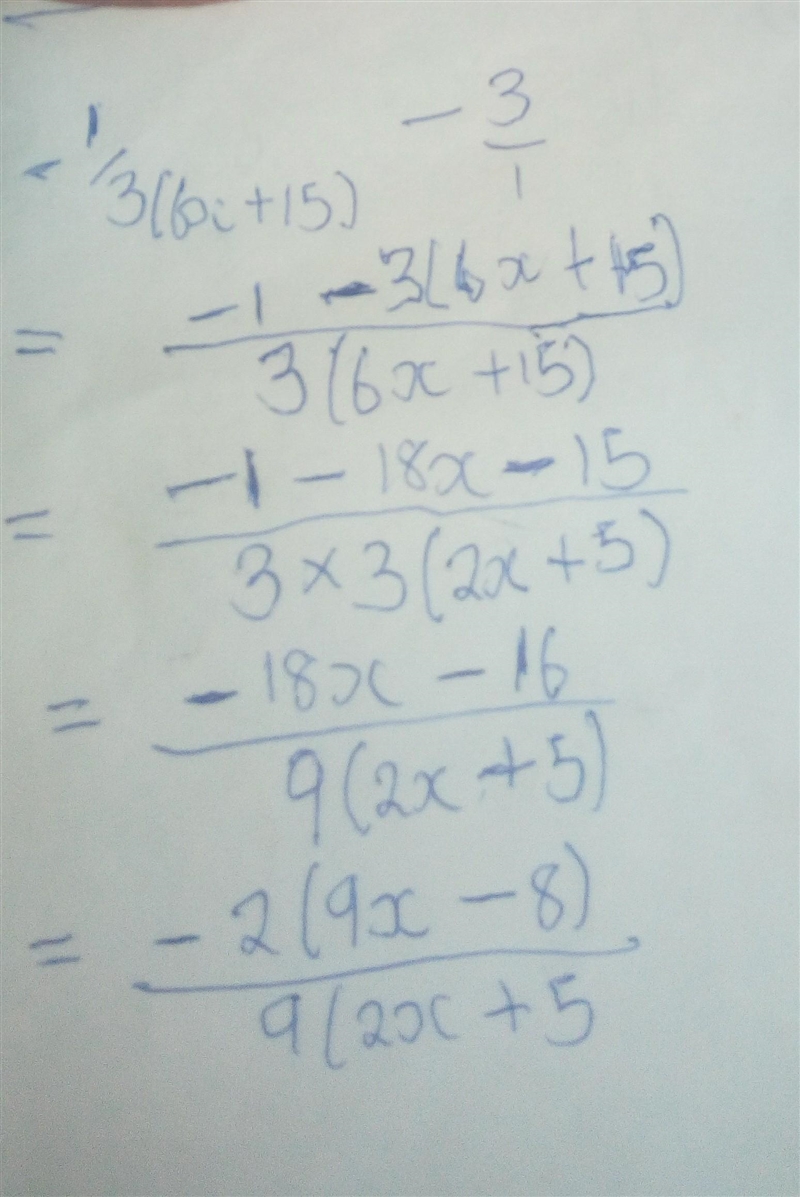 - 1/3(6x+15) - 3/1
= -1 - 3(6x + 15) / 3(6x + 15)
= -1 - 18x - 15 / 3 × 3(2x + 5)
= -18x - 16 / 9(2x + 5)
= -2(9x - 8) / 9(2x + 5